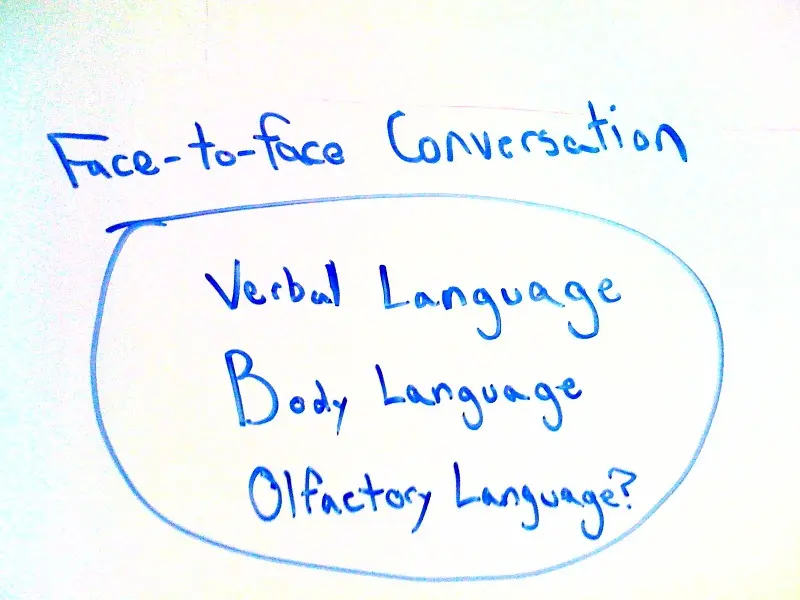 Face-to-face Conversation
Verbal Language
Body Language
Olfactory Language?